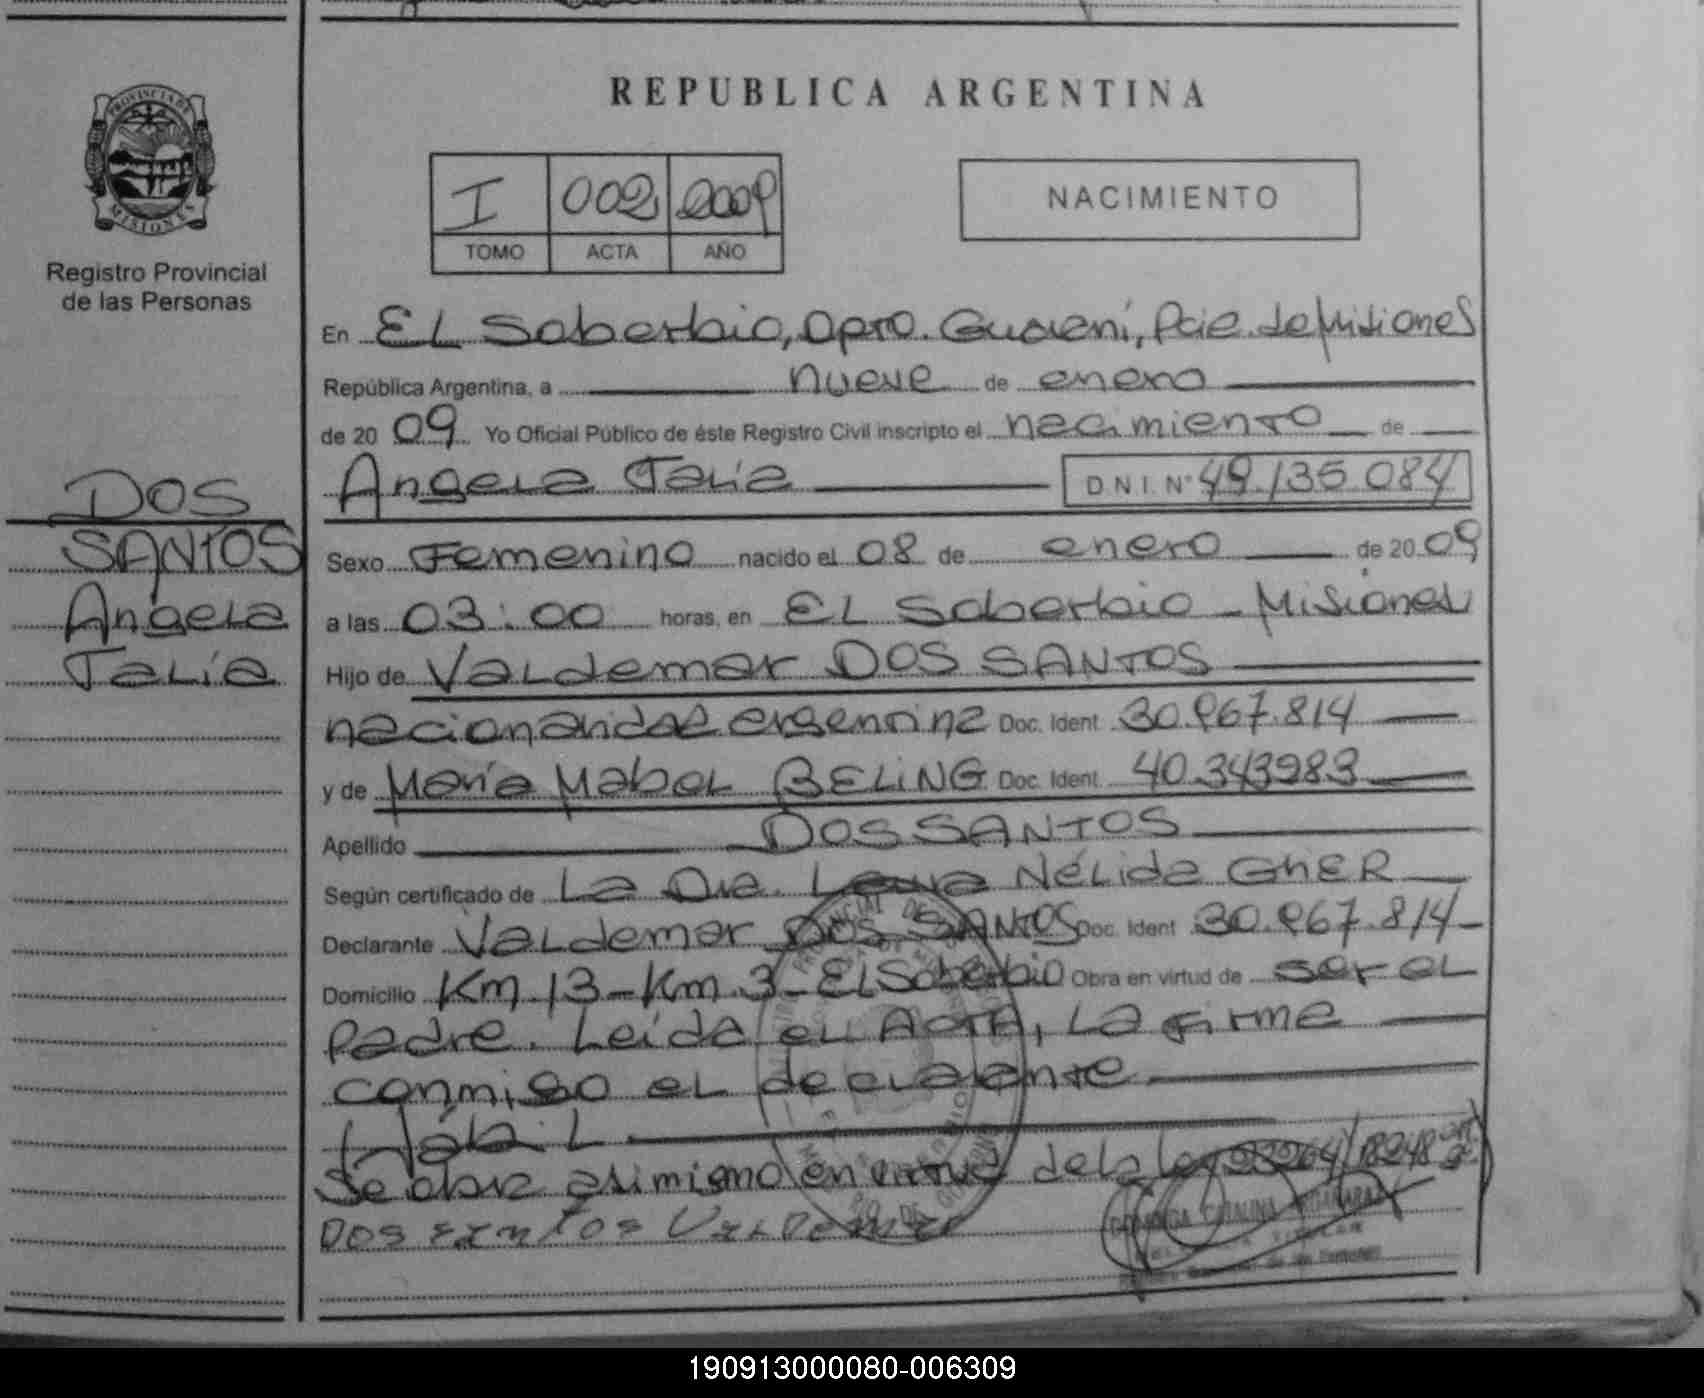 PROVINCIA DE
MISIONES
Registro Provincial
de las Personas
DOS
SANTOS
Angela
Talía
REPUBLICA ARGENTINA
I 002 2009
TOMO ACTA AÑO
NACIMIENTO
En EL Soberbio, Dpto. Guaraní, Pcie. de Misiones
República Argentina, a nueve de enero
de 20 09 Yo Oficial Público de éste Registro Civil inscripto el nacimiento de
Angela Talía D.N.I. Nº 49.135.084
Sexo Femenino nacido el 08 de enero de 20 09
a las 03:00 horas, en EL Soberbio - Misiones
Hijo de Valdemar DOS SANTOS
nacionalidad argentina Doc. Ident. 30.967.814
y de María Mabel BELING Doc. Ident. 40.343983
Apellido DOS SANTOS
Según certificado de La Dra. Nélida GHER
Declarante Valdemar DOS SANTOS Doc. Ident. 30.967.814-
Domicilio Km. 13 - Km. 3 - El Soberbio Obra en virtud de ser el
Padre. Leída el ACTA, La firma
conmigo el declarante
Se obra asimismo en virtud de la Ley /18248
DOS SANTOS VALDEMAR
190913000080-006309